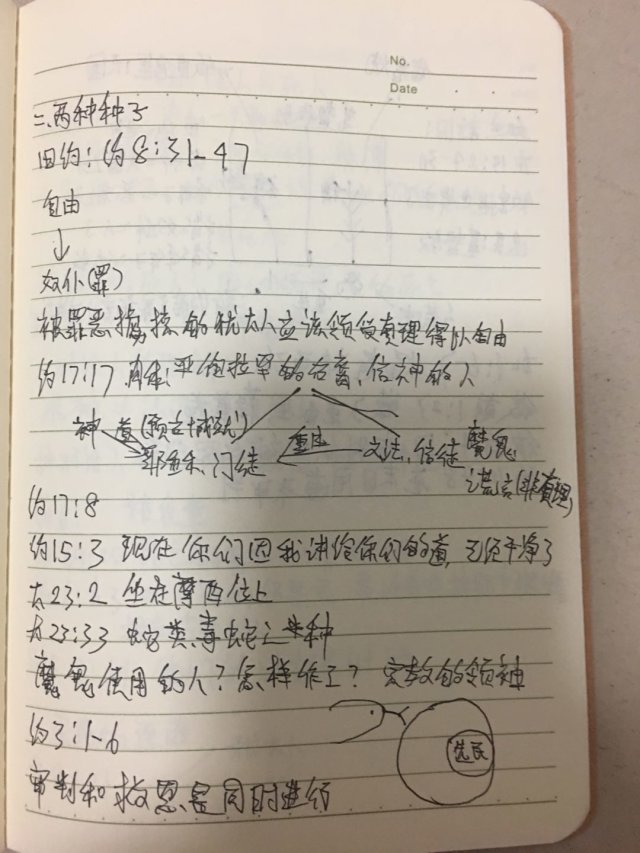 No.
Date
二、两种种子
旧约：约8：31-47
自由
↓
奴仆（罪）
被罪恶捆掳的犹太人应该领受真理得以自由
约17：17 亚伯拉罕的后裔，信神的人
神 道（预言+成就）
耶稣、门徒 重生 文法、信徒 魔鬼
谎言（非真理）
约17：8
约15：3 现在你们因我讲给你们的道，已经干净了
太23：2 坐在摩西位上
太23：33 蛇类、毒蛇之种
魔鬼使用的人？怎样作工？ 宗教的领袖
约3：1-6
选民
审判和救恩是同时进行